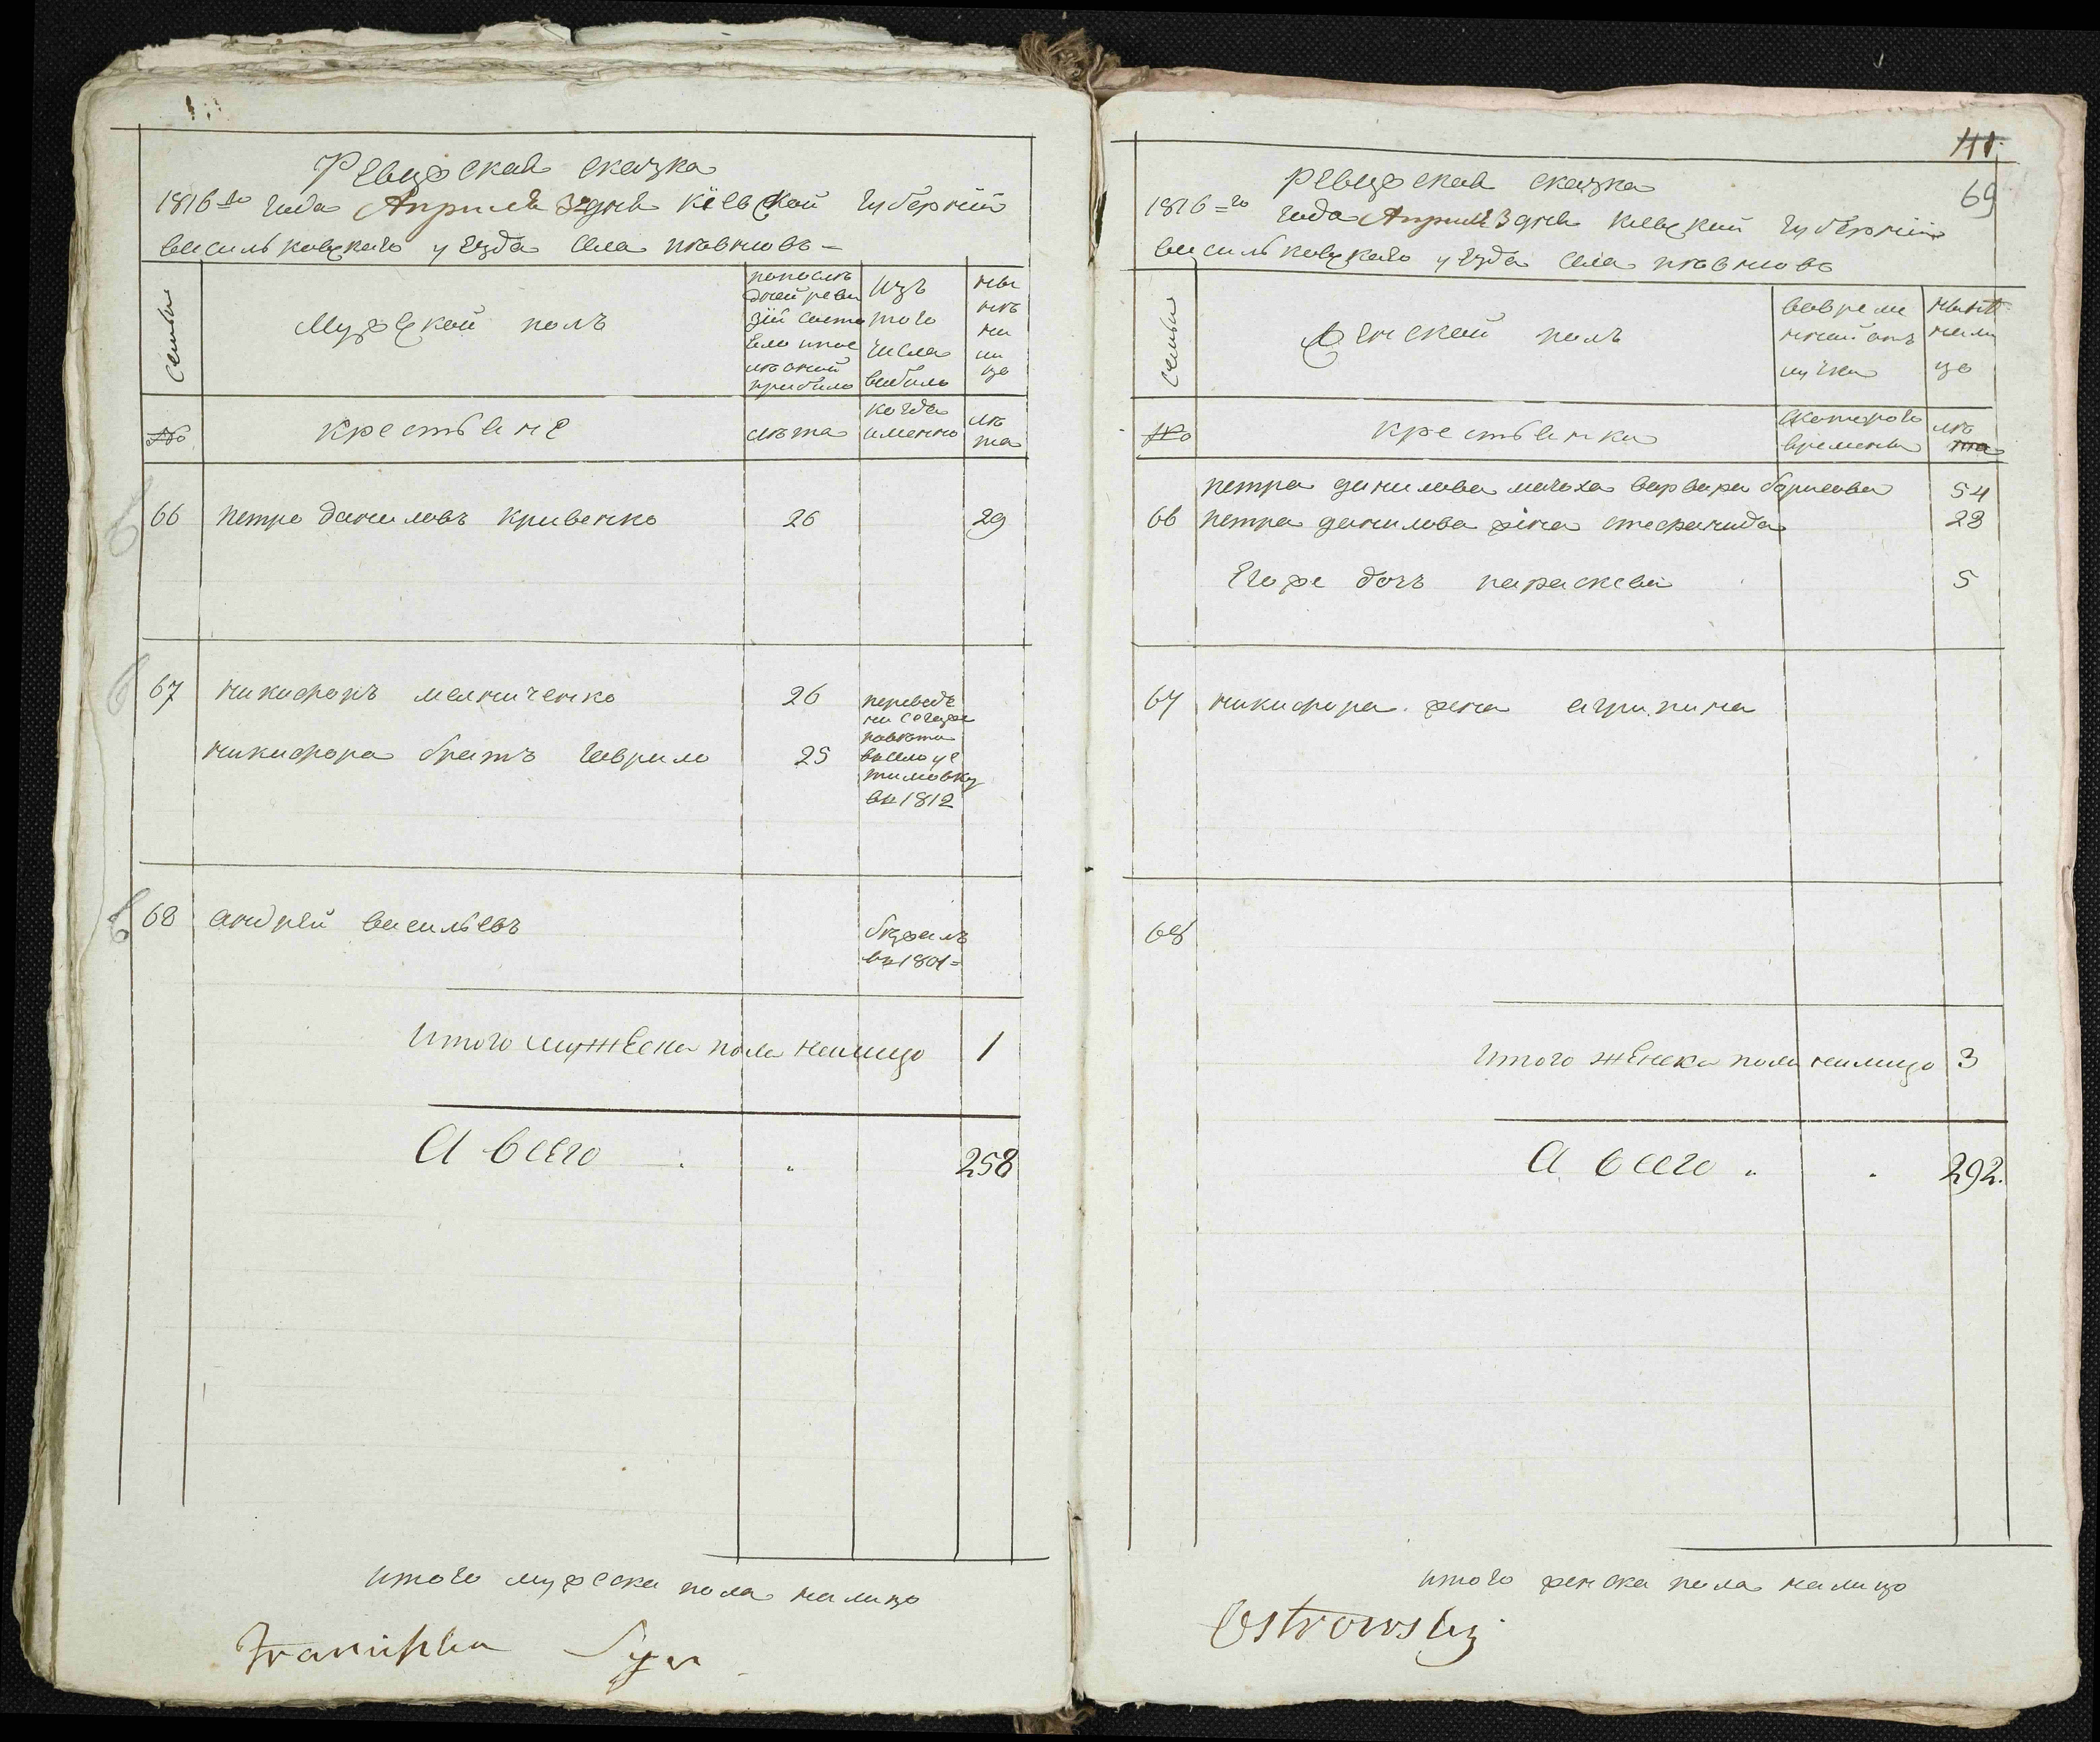 Ревизская сказка
1816го года Апреля 3 дня Кіевской губерніи
васильковского уезда села
Семьи
Мужской полъ
попослѣ
дней реви
зіи состо
яло и пос
лѣ оной
прибыло
изъ
того
числа
выбыло
ны
нѣ
на
ли
цо
№
крестьяне
лѣта
когда
именно
лѣ
та
66 петро даниловъ кривенко 26 29
67 никифоръ мелниченко 26
никифора братъ гаврило 25
переведе
ни
въ село
в 1812
68 андрей васильевъ
бежалъ
в 1801
Итого мужеска пола налицо 1
А всего 258
итого мужеска пола налицо
111
69
ревизская сказка
1816=го года Апреля 3 дня киевской губернии
васильковского уезда села
семьи
Женской полъ
вовреме
нной отъ
лучки
нынѣ
нали
цо
№
крестьянки
скоторого
времени
лѣ
та
петра данилова мачоха варвара борисова 54
66 петра данилова жена стефанида 23
Егоже дочь параскева 5
67 никифора жена агрипина
68
Итого женска пола налицо 3
А всего 292.
итого женска пола налицо
Ostrowsky